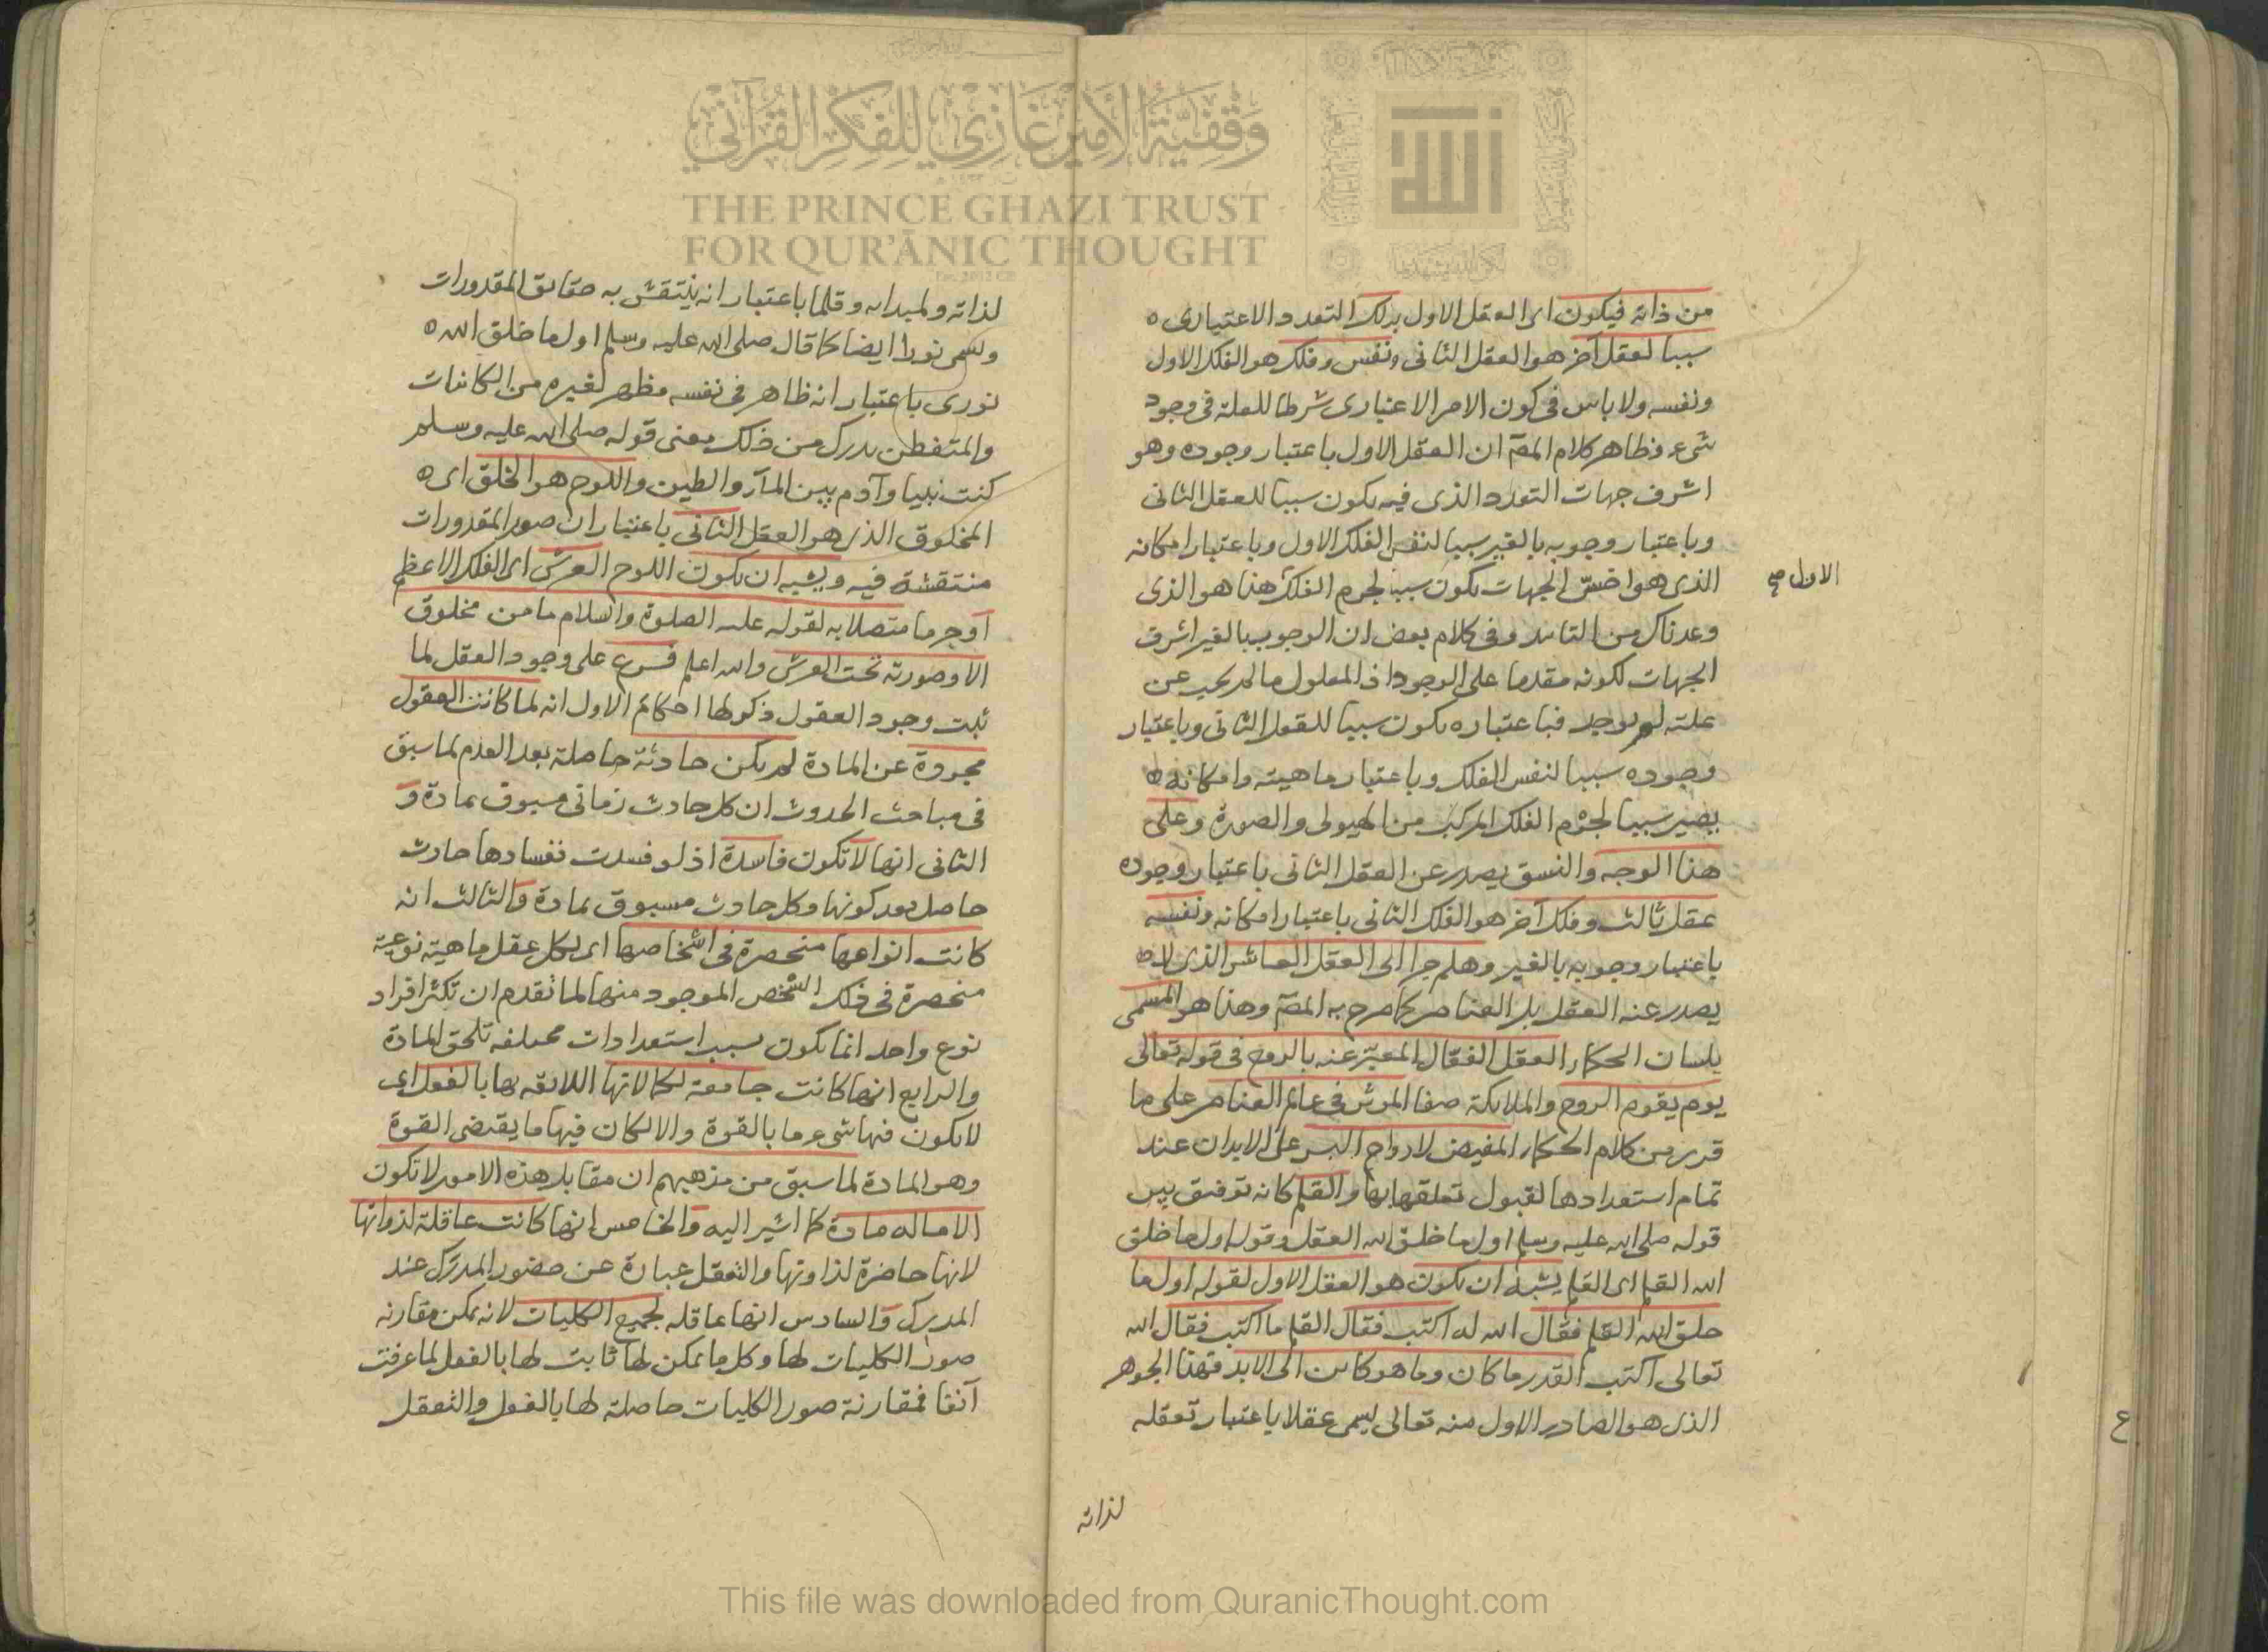 وقفية الأمير غازي للفكر القرآني
THE PRINCE GHAZI TRUST
FOR QUR'ĀNIC THOUGHT
من ذاته فيكون اى العقل الاول بذلك التعدد الاعتبارى
سببا لعقل آخر هو العقل الثانى ونفس وفلك هو الفلك الاول
ونفسه ولا باس فى كون الامر الاعتبارى شرطا للعلة فى وجود
شىء وظاهر كلام المصّ ان العقل الاول باعتبار وجوده وهو
اشرف جهات التعدد الذى فيه يكون سببا للعقل الثانى
وباعتبار وجوبه بالغير سببا لنفس الفلك الاول وباعتبار امكانه
الذى هو اخسّ الجهات يكون سببا لجرم الفلك هذا هو الذى
الاول صح
وعدناك من وفى كلام بعض ان الوجوب بالغير اشرف
الجهات لكونه مقدما على الوجود اذ المعلول ما لم يجب عن
علته لم يوجد فباعتباره يكون سببا للعقل الثانى وباعتبار
وجوده سببا لنفس الفلك وباعتبار ماهيته وامكانه
يصير سببا لجرم الفلك المركب من الهيولى والصورة وعلى
هذا الوجه والنسق يصدر عن العقل الثانى باعتبار وجوده
عقل ثالث وفلك آخر هو الفلك الثانى باعتبار امكانه ونفسه
باعتبار وجوبه بالغير وهلم جرا الى العقل العاشر الذى لا
يصدر عنه العقل بل العناصر كما صرح به المصّ وهذا هو المسمى
بلسان الحكماء العقل الفعّال المعبّر عنه بالروح فى قوله تعالى
يوم يقوم الروح والملائكة صفا المؤثر فى عالم العناصر على ما
قرر من كلام الحكماء المفيض لارواح البشر على الابدان عند
تمام استعدادها لقبول تعلقها بها والقلم كانه توفيق بين
قوله صلى الله عليه وسلم اول ما خلق الله العقل وقوله اول ما خلق
الله القلم اى القلم يشبه ان يكون هو العقل الاول لقوله اول ما
خلق الله القلم فقال الله له اكتب فقال القلم ما اكتب فقال الله
تعالى اكتب القدر ما كان وما هو كائن الى الابد فهذا الجوهر
الذى هو الصادر الاول منه تعالى يسمى عقلا باعتبار تعقله
لذاته
لذاته ولمبدأه وقلما باعتبار انه ينتقش به حقايق المقدورات
ويسمى نورا ايضا كما قال صلى الله عليه وسلم اول ما خلق الله
نورى باعتبار انه ظاهر فى نفسه مظهر لغيره من الكائنات
والمتفطن يدرك من ذلك معنى قوله صلى الله عليه وسلم
كنت نبيا وآدم بين المآء والطين واللوح هو الخلق اى
المخلوق الذى هو العقل الثانى باعتبار ان صور المقدورات
منتقشة فيه ويشبه ان يكون اللوح العرش اى الفلك الاعظم
آو جرما متصلا به لقوله عليه الصلوة والسلام ما من مخلوق
الا وصورته تحت العرش والله اعلم فرع على وجود العقل لما
ثبت وجود العقول ذكر لها احكام الاول انه لما كانت العقول
مجردة عن المادة لم يكن حادثة حاصلة بعد العدم لما سبق
فى مباحث الحدوث ان كل حادث زمانى مسبوق بمادة و
الثانى انها لا تكون فاسدة اذ لو فسدت ففسادها حادث
حاصل بعد كونها وكل حادث مسبوق بمادة والثالث انه
كانت انواعها منحصرة فى اشخاصها اى لكل عقل ماهية نوعية
منحصرة فى ذلك الشخص الموجود منها لما تقدم ان تكثر افراد
نوع واحد انما يكون بسبب استعدادات مختلفه تلحق المادة
والرابع انها كانت جامعة لكمالاتها اللائقه بها بالفعل اى
لا يكون فيها شىء ما بالقوة والا لكان فيها ما يقتضى القوة
وهو المادة لما سبق من مذهبهم ان مقابل هذه الامور لا تكون
الا ماله مادة كما اشير اليه والخامس انها كانت عاقلة لذواتها
لانها حاضرة لذاوتها والتعقل عبارة عن حضور المدرَك عند
المدرِك والسادس انها عاقله لجميع الكليات لانه يمكن مقارنه
صور الكليات لها وكل ما يمكن لها ثابت لها بالفعل لما عرفت
آنفا فمقارنة صور الكليات حاصلة لها بالفعل والتعقل
This file was downloaded from QuranicThought.com